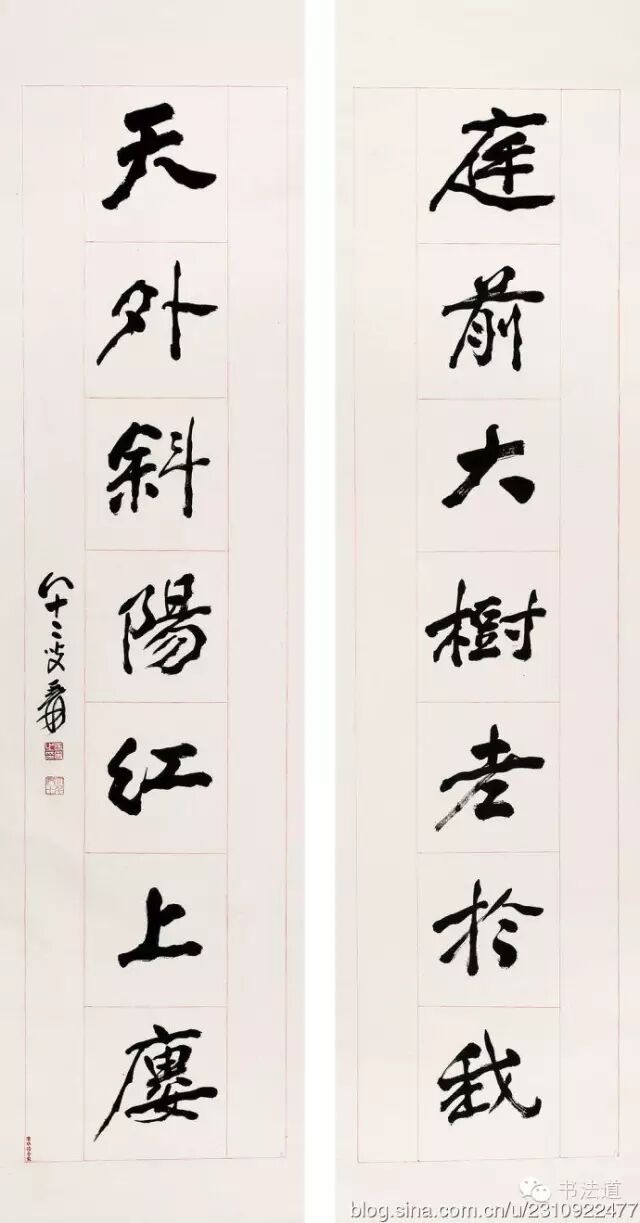 庭前大樹老於我
天外斜陽紅上廔
八十二叟爰
书法道
blog.sina.com.cn/u/2310922477